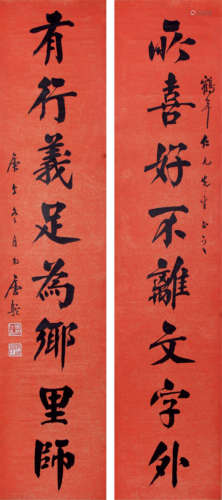 所喜好不離文字外
鶴年仁兄先生正之
有行義足為鄉里師
庚午冬月 唐駝